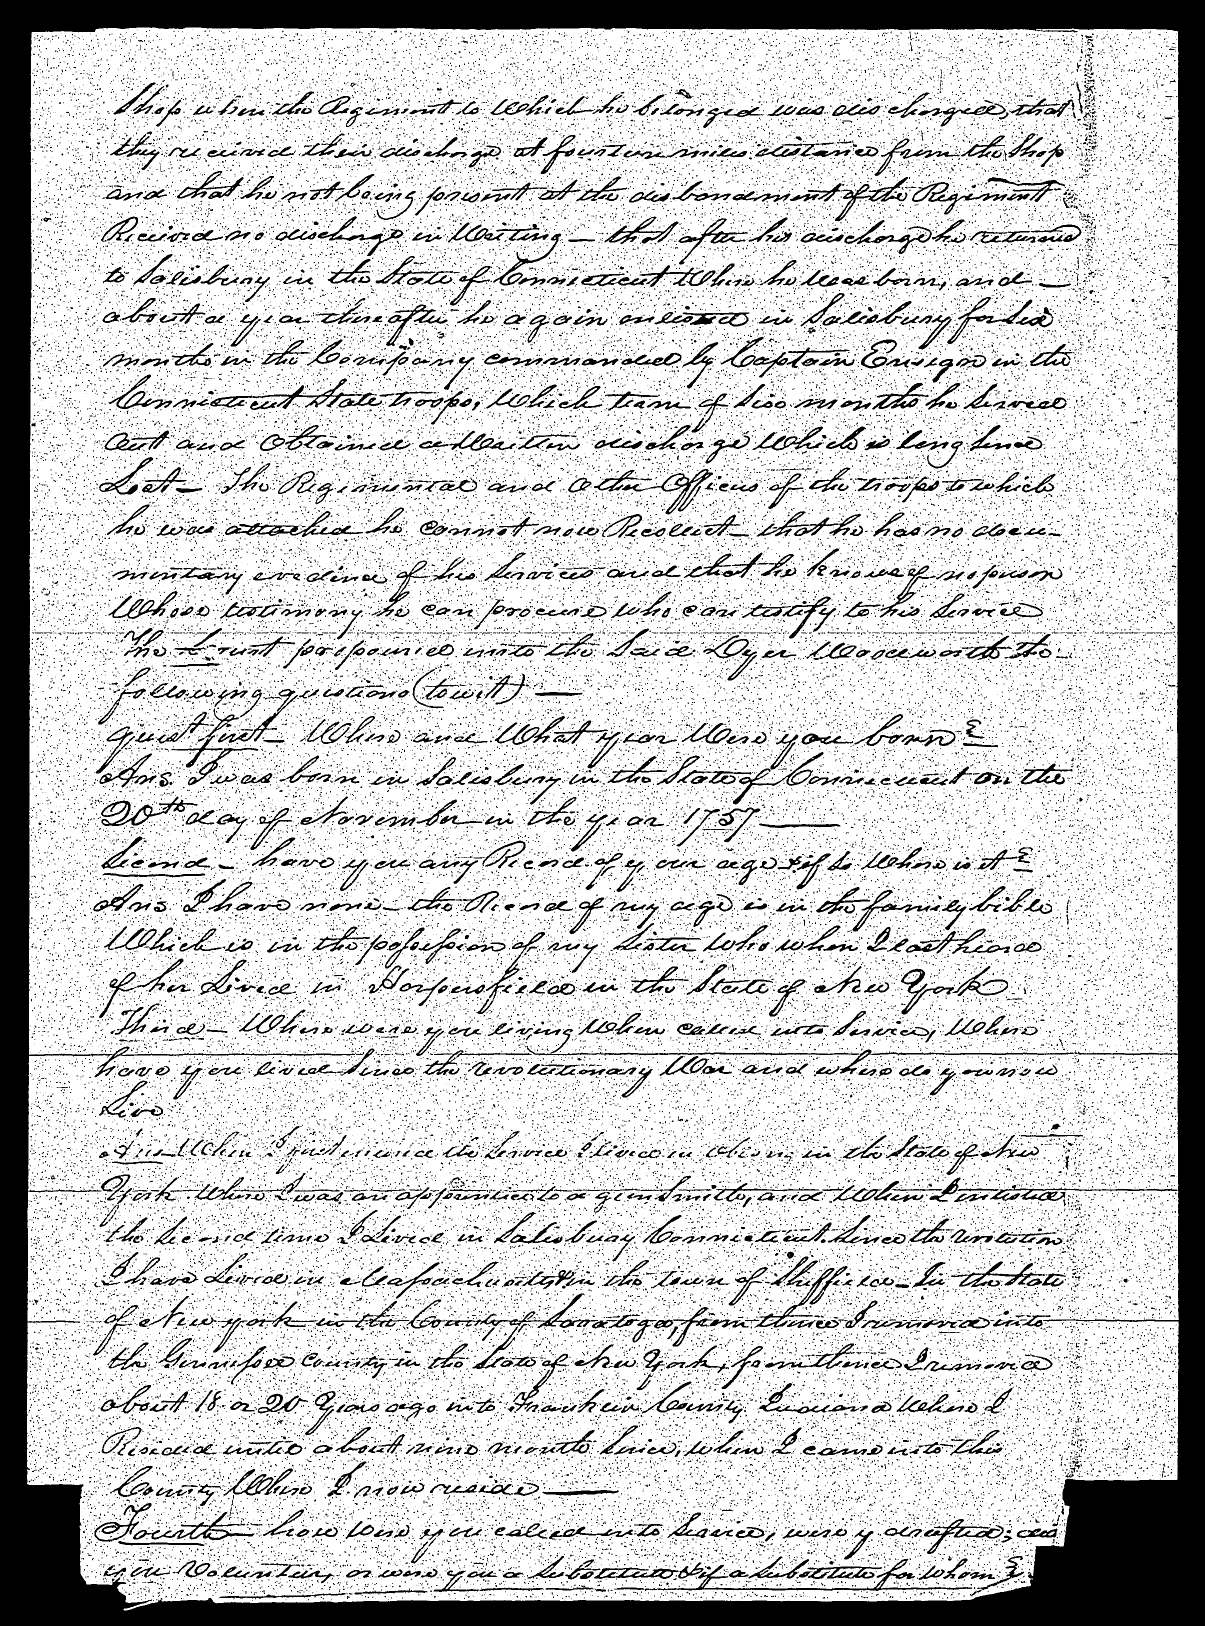 Shop when the Regiment to Which he belonged was discharged, that
they received their discharge at fourteen miles distance from the Shop
and that he not being present at the disbandment of the Regiment
Received no discharge in Writing — that after his discharge he returned
to Salisbury in the State of Connecticut Where he was born, and —
about a year thereafter he again enlisted in Salisbury for Six
months in the Company commanded by Captain Ensign in the
Connecticut State troops, Which term of Six months he Served
Out and Obtained a Written discharge Which is long Since
Lost — The Regimental and Other Officers of the troops to which
he was attached he cannot now Recollect — that he has no docu-
mentary evidence of his Services and that he knows of no person
Whose testimony he can procure who can testify to his Service
The Court propounded unto the Said Dyer Woodworth the
following questions (to wit) —
quest first — Where and What year Were you born?
Ans. I was born in Salisbury in the State of Connecticut on the
20th day of November in the year 1757 —
Second — have you any Record of your age & if so Where is it?
Ans I have none — the Record of my age is in the family bible
Which is in the possession of my Sister Who when I last heard
of her Lived in Harpersfield in the State of New York
Third — Where were you living When called into Service, Where
have you lived Since the revolutionary War and where do you now
Live
Ans When I first entered the Service I lived in in the State of New
York Where I was an apprentice to a gun Smith, and When I enlisted
the Second time I Lived in Salisbury Connecticut. Since the revolution
I have Lived in Massachusetts in the town of Sheffield — In the State
of New York in the County of Saratoga, from thence I removed into
the Gennessee County in the State of New York, from thence I removed
about 18 or 20 Years ago into Franklin County Indiana Where I
Resided until about nine months Since, when I came into this
County Where I now reside —
Fourth — how Were you called into Service, were y drafted; did
you Volunteer, or were you a Substitute & if a Substitute for whom?